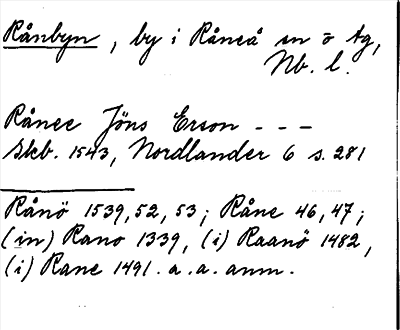 Rånbyn, by i Råneå sn ö tg,
Nb. l.
Rånee Jöns Erson - - -
Skb. 1543, Nordlander 6 s. 281
Rånö 1539, 52, 53; Råne 46, 47;
(in) Rano 1339, (i) Raanö 1482,
(i) Rane 1491. a. a. anm.